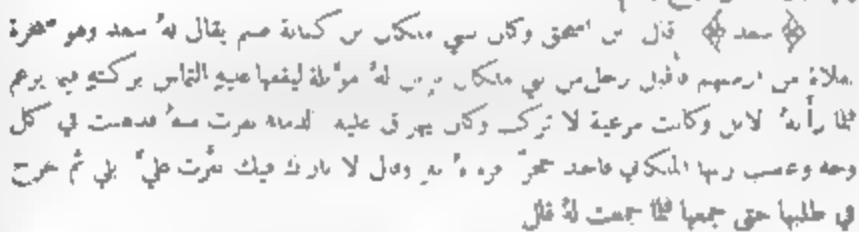 ﴿ سعد ﴾ قال ابن اسحق وكان لبني ملكان بن كنانة صنم يقال لهُ سعد وهو صخرة
بفلاة من ارضهم فأقبل رجل من بني ملكان بابل لهُ مؤبلة ليقفها عليهِ التماس بركتهِ فيما يزعم
فلما رأتهُ الابل وكانت مرعية لا تركب وكان يهرق عليه الدماء نفرت منهُ فذهبت في كل
وجه وغضب ربها الملكاني فاخذ حجراً فرماهُ بهِ وقال لا بارك الله فيك نفّرت عليّ ابلي ثم خرج
في طلبها حتى جمعها فلما جمعت لهُ قال